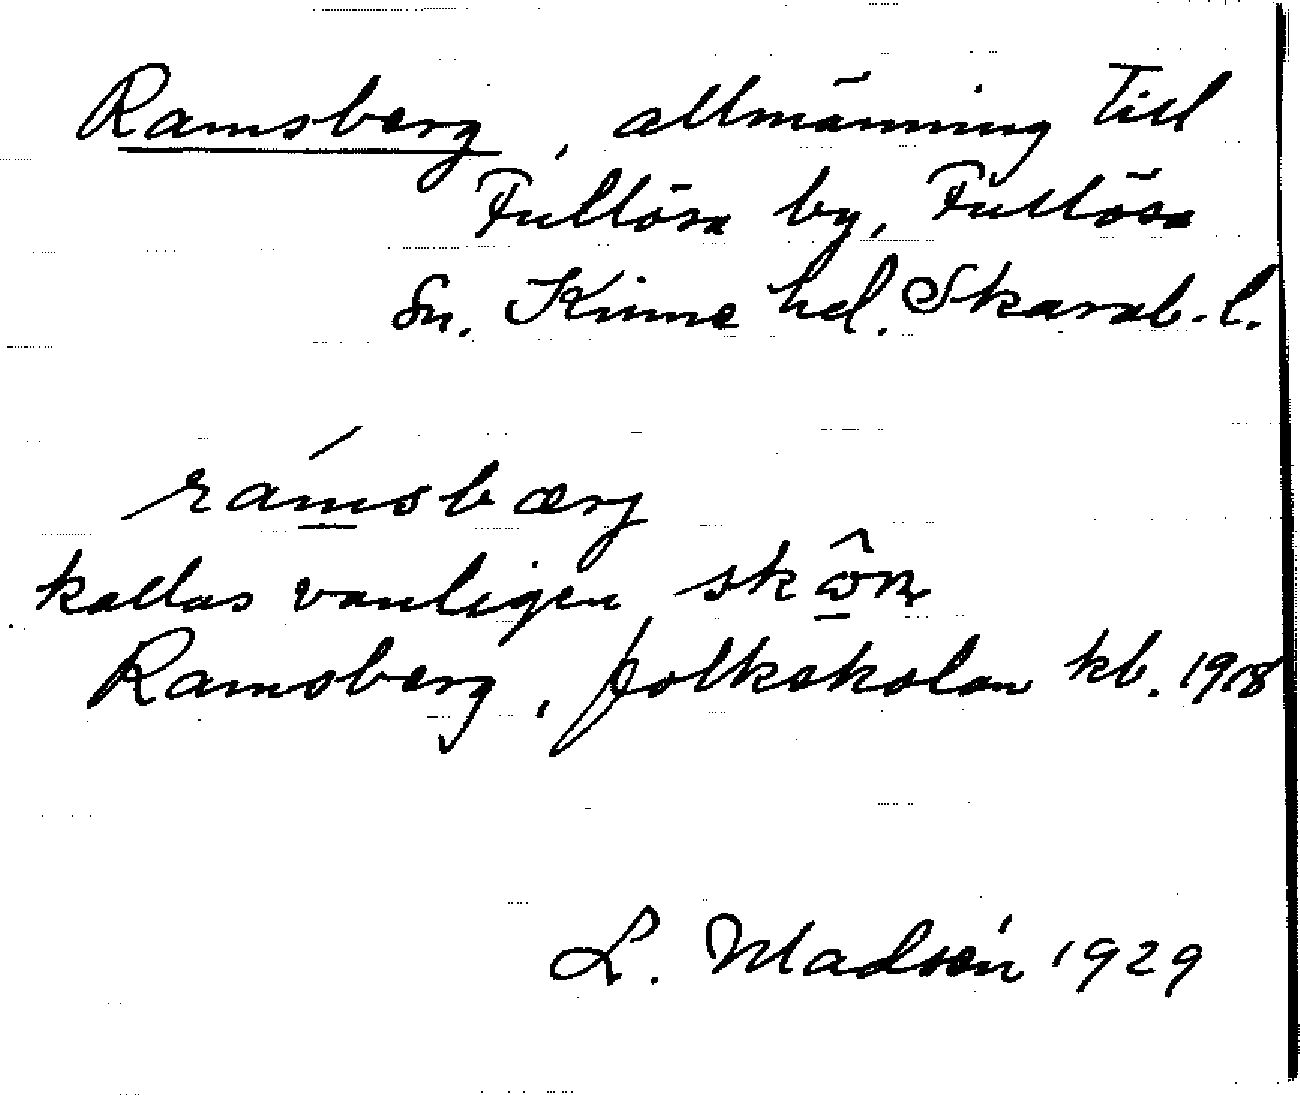 Ramsberg, allmänning till
Fullösa by, Fullösa
Sn. Kinne hd. Skarab. l.
ramsbærg
kallas vanligen skôn
Ramsberg, folkskolan kb. 1918
L. Madsén 1929